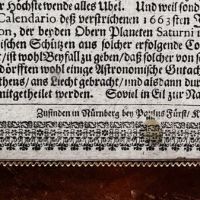 r Höchste wende alles Ubel. Und weil sond
Calendario deß verstrichenen 1663sten J
on, der beyden Obern Planeten Saturni
ischen Schützen aus solcher erfolgende Co
/ist wohl Beyfall zu geben/ daß solcher von
dörfften wohl einige Astronomische Gutach
thens/ ans Liecht gebracht/ und als dann dur
mitgetheilet werden. Soviel in Eil zur Na
Zufinden in Nürnberg bey Paulus Fürst/ K